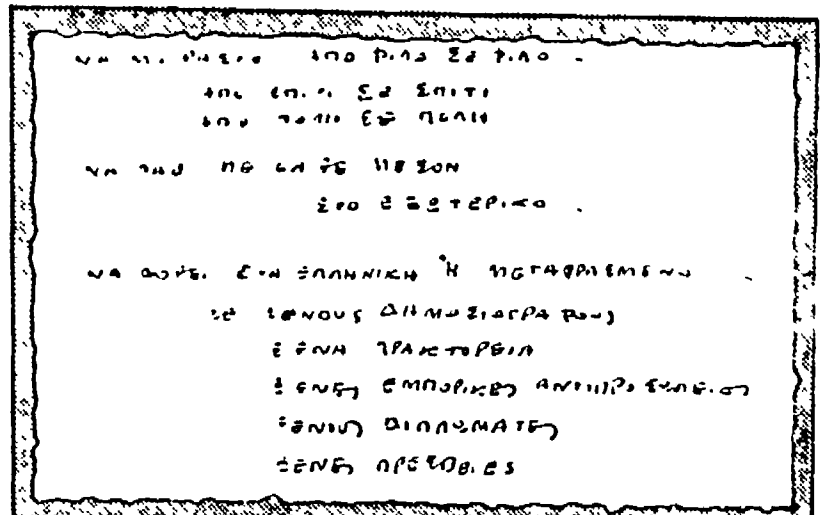 ΝΑ ΑΠΟ ΦΙΛΟ ΣΕ ΦΙΛΟ.
ΑΠΟ ΣΠΙΤΙ ΣΕ ΣΠΙΤΙ
ΑΠΟ ΠΟΛΗ ΣΕ ΠΟΛΗ
ΝΑ ΠΑΕΙ ΜΕ ΚΑΘΕ ΜΕΣΟΝ
ΣΤΟ ΕΞΩΤΕΡΙΚΟ.
ΝΑ ΔΟΘΕΙ ΣΤΗΝ ΕΛΛΗΝΙΚΗ Ή ΜΕΤΑΦΡΑΣΜΕΝΟ
ΣΕ ΞΕΝΟΥΣ ΔΗΜΟΣΙΟΓΡΑΦΟΥΣ
ΞΕΝΑ ΠΡΑΚΤΟΡΕΙΑ
ΞΕΝΕΣ ΕΜΠΟΡΙΚΕΣ ΑΝΤΙΠΡΟΣΩΠΕΙΕΣ
ΞΕΝΟΥΣ ΔΙΠΛΩΜΑΤΕΣ
ΞΕΝΕΣ ΠΡΕΣΒΕΙΕΣ